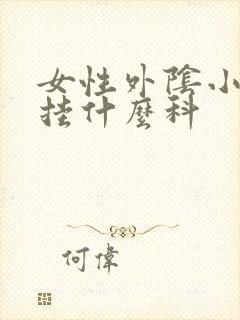 女性外陰小
挂什麼科
何偉